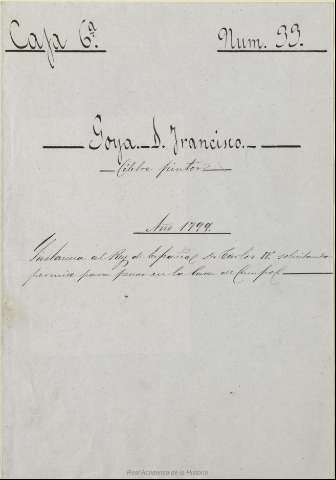 Caja 6ª.
Num. 33.
Goya. D. Francisco.
Célebre pintor
Año 1799
Instancia al Rey de España D. Carlos IV. solicitando
permiso para en la Casa de Campo
Real Academia de la Historia